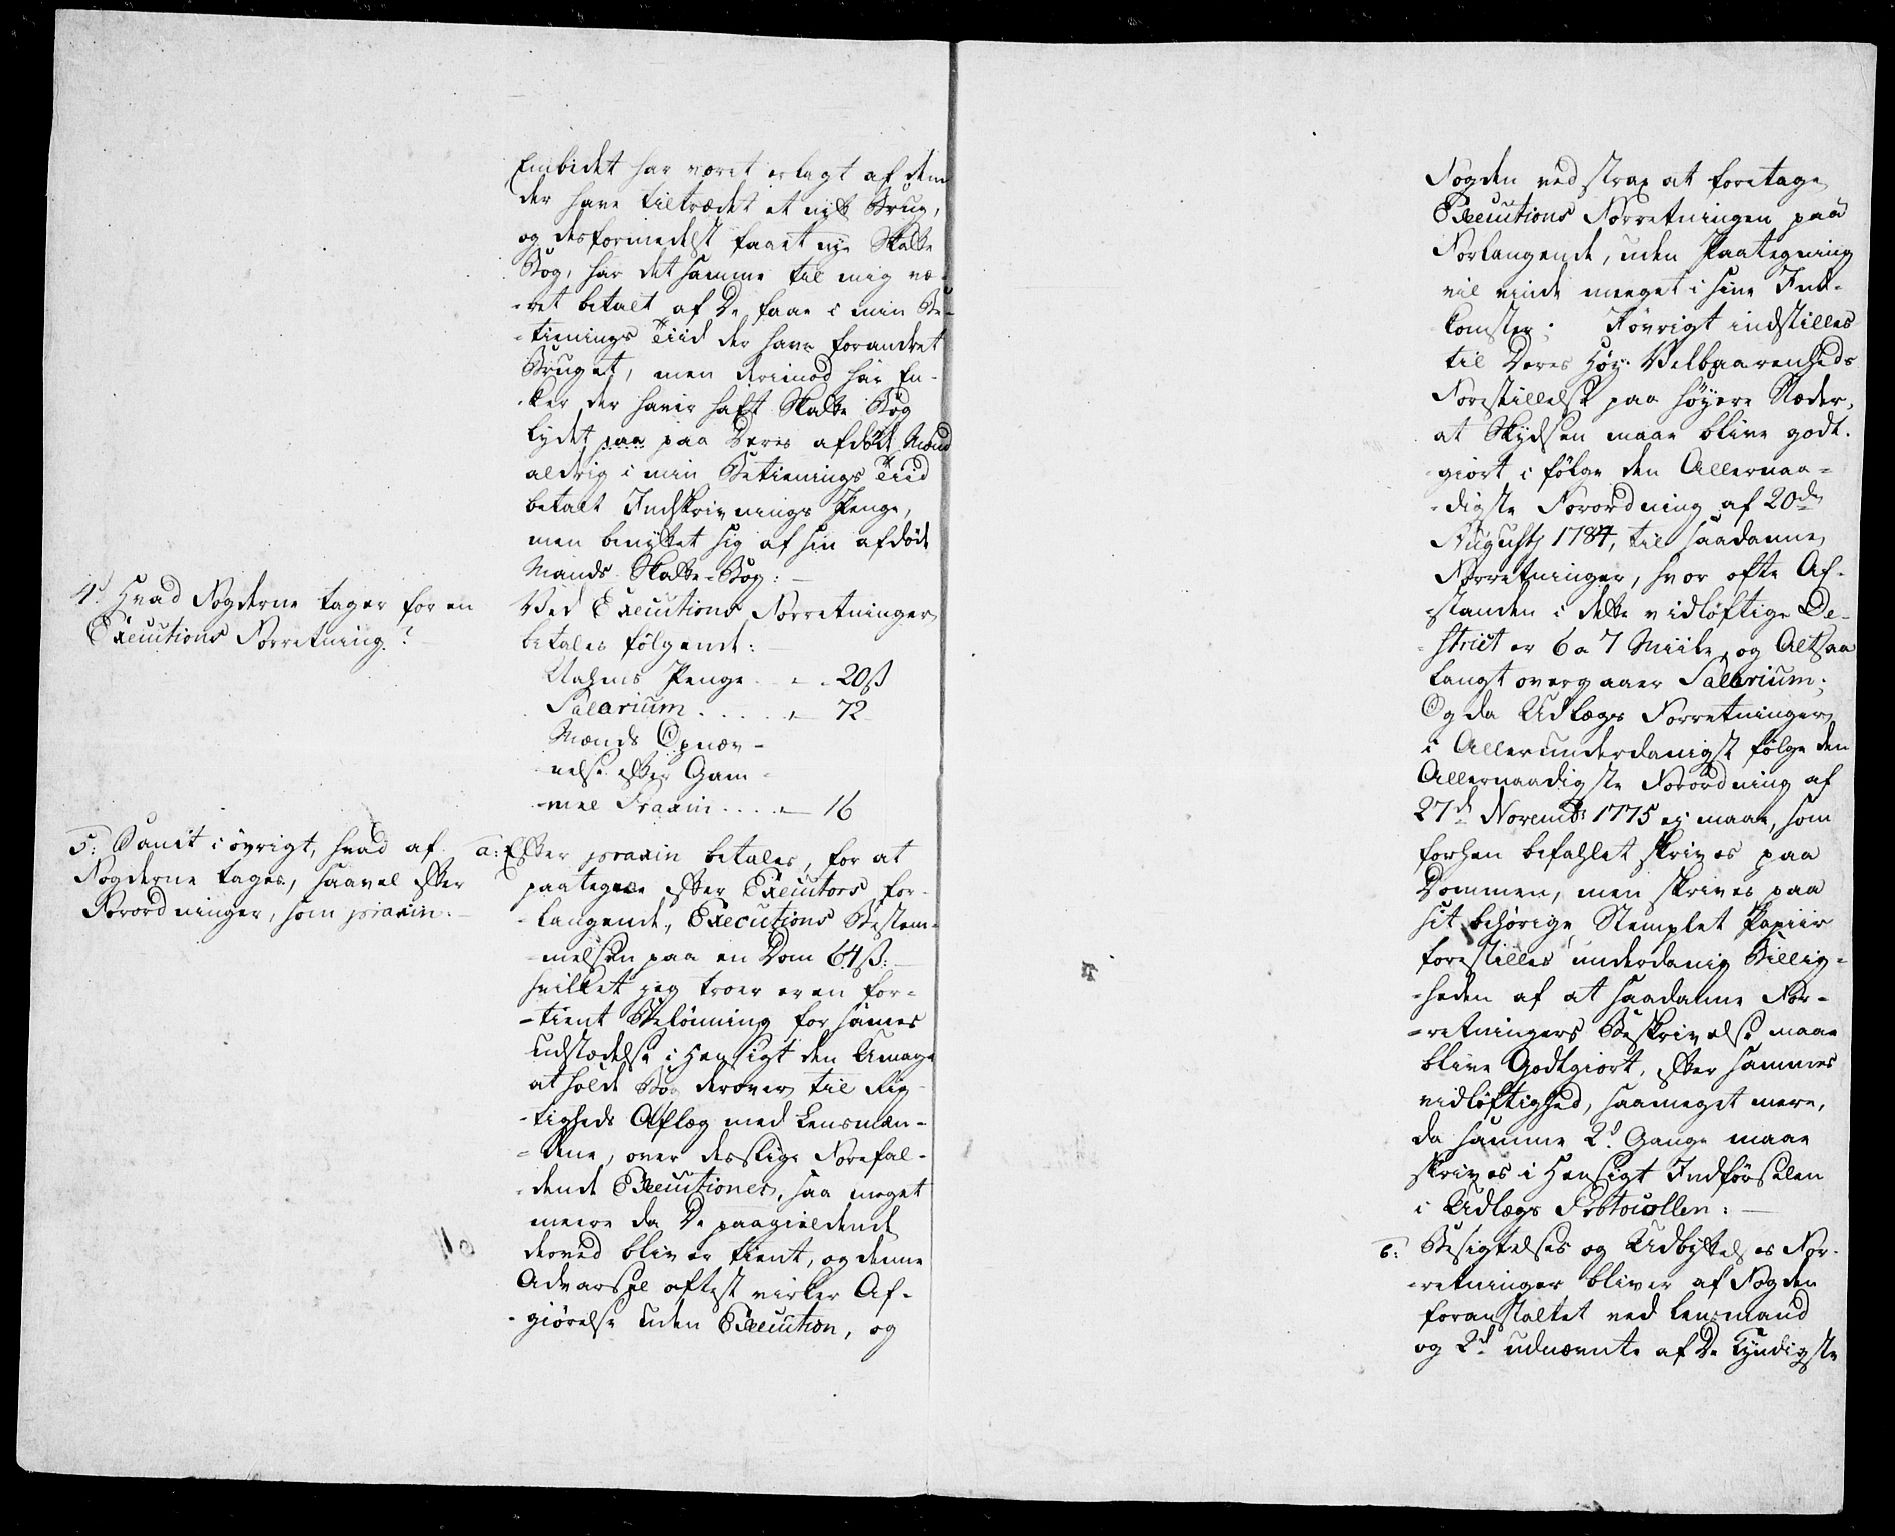 Embedet har været erlagt af dem
der have tiltrædet et nyt Brug,
og desformedelst faaet nye Skatte
Bog, har det samme til mig væ-
-ret betalt af De faae i min Be-
-tienings Tiid der have forandret
Bruget, men derimod har En-
-ker der haver haft Skatte Bog
lydet paa paa Deres afdøde Mand
aldrig i min Betienings Tiid
betalt Indskrivnings Penge,
men benyttet sig af sin afdøde
Mands Skatte-Bog:
4d Hvad Fogderne tager for en
Executions Forretning?
Ved Executions Forretninger
betales følgende:
Rahms Penge - - 20 ß
Salarium . . . . - 72
Mænds Opnæv-
nelse efter Gam-
-mel Praxin . . . - 16
5: Samt i øvrigt, hvad af
Fogderne tages, saavel efter
Forordninger, som praxin.
a: Efter praxin betales, for at
paategne efter Executors for-
-langende, Executions Bestem-
-melsen paa en Dom 64 ß:
hvilket jeg troer er en for-
-tient Belønning for sames
udstædelse i Hensigt den Umage
at holde Bog derover til Rig-
-tigheds Aflæg med Lensmæn-
-dene, over deslige Forefal-
-dende Executioner, saa meget
meere da De paagieldende
derved bliver tient, og denne
Advarsel oftest virker Af-
-giørelse uden Execution, og
Fogden ved strax at foretage
Executions Forretningen paa
Forlangende, uden Paategning
vil vinde meeget i sine Ind-
komster; Iøvrigt indstilles
til Deres Høy Velbaarenheds
Forestillelse paa høyere Stæder,
at Skydsen maae blive godt-
giort i følge den Allernaa-
-digste Forordning af 20de
Augusti 1784, til saadanne
Forretninger, hvor ofte Af-
-standen i dette vidløftige De-
-strict er 6 a 7 Miile, og Altsaa
langt overgaaer Salarium;
Og da Udlægs Forretninger
i Allerunderdanigst følge den
Allernaadigste Forordning af
27de Novembr 1775 ej maae, som
forhen befahlet skrives paa
Dommen, men skrives paa
sit behørige Stemplet Papiir
forestilles underdanig Billig-
-heden af at saadanne For-
-retningers Beskrivelse maae
blive Godtgiort, efter sammes
vidløftighed, saameget mere,
da samme 2de Gange maae
skrives i Hensigt Indførselen
i Udlægs Protocollen:
6: Besigtelses og Udbyttelses For-
-retninger bliver af Fogden
foranstaltet ved Lensmand
og 2de udnævnte af De Kyndigste